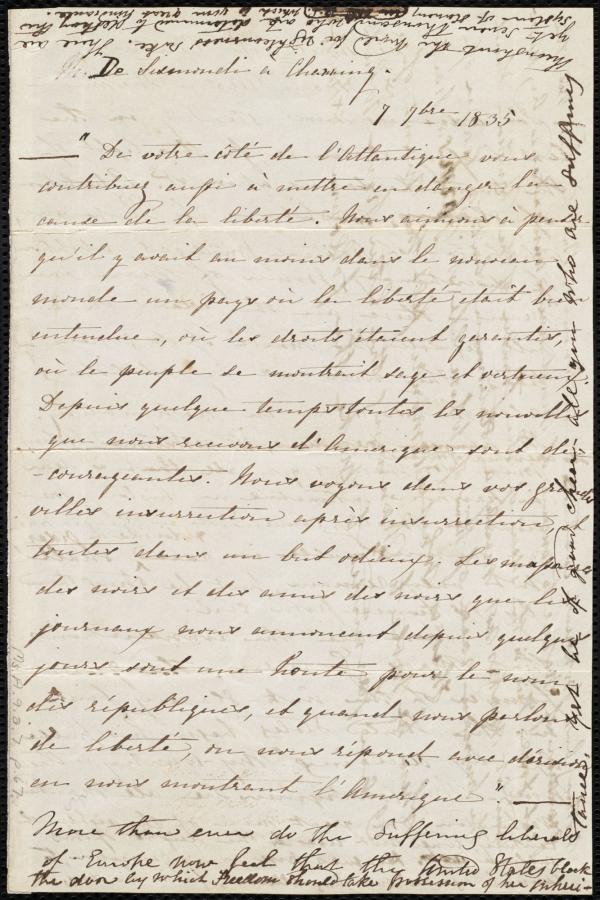 M. De Sismondi à Channing.
7 7bre 1835
"De votre côté de l'Atlantique vous
contribuez aussi à mettre en danger la
cause de la liberté. Nous aimions à penser
qu'il y avait au moins dans le nouveau
monde un pays où la liberté était bien
entendue, où les droits étaient garantis,
où le peuple se montrait sage et vertueux.
Depuis quelque temps toutes les nouvelles
que nous recevons d'Amerique sont dé-
-courageantes. Nous voyons dans vos grandes
villes insurrection après insurrection, et
toutes dans un but odieux. Les massacres
des noirs et des amis des noirs que les
journaux nous annoncent depuis quelques
jours sont une honte pour le nom
des républiques, et quand nous parlons
de liberté, on nous répond avec dérision
en nous montrant l'Amerique."
More than ever do the suffering liberals
of Europe now feel that the United States block
the door by which Freedom should take possession of her inheri-
tance. yet be of good cheer all you who are suffering
throughout the world for righteousness sake. There are
yet seven thousand who are determined to destroy this
system of slavery
Ms.A.9.2.7 p.67